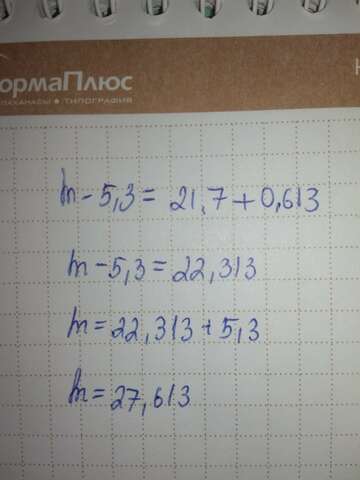 ормаПлюс
ПАКАНАСЫ • ТИПОГРАФИЯ
m - 5,3 = 21,7 + 0,613
m - 5,3 = 22,313
m = 22,313 + 5,3
m = 27,613